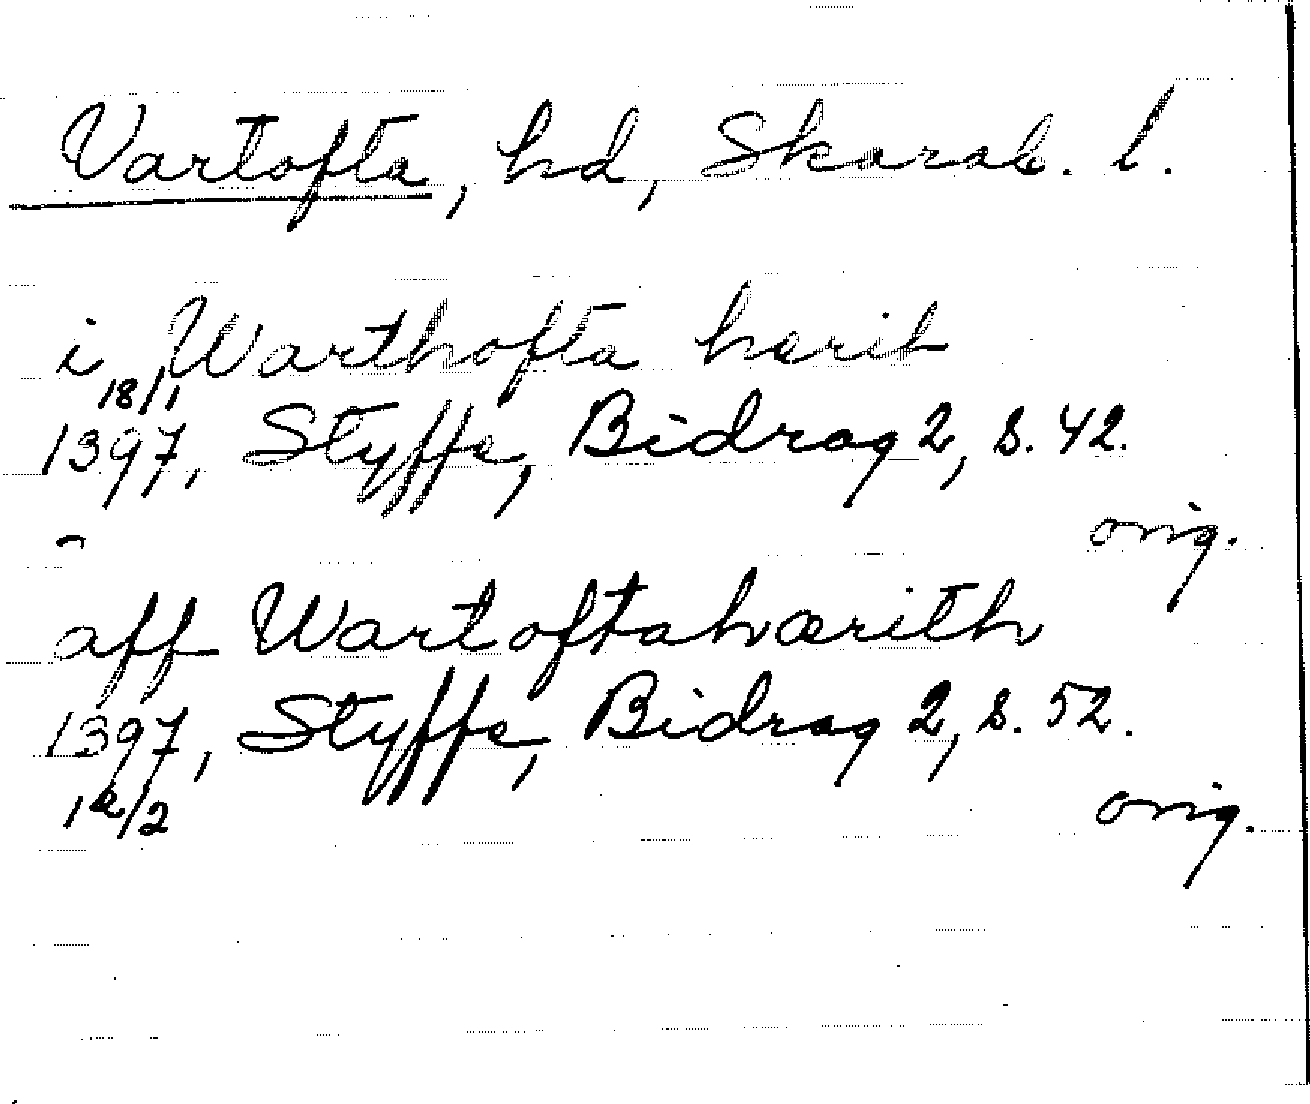 Vartofta, hd, Skarab. l.
i Warthofta herit
18/1
1397, Styffe, Bidrag 2, s. 42.
orig.
aff Wartoftahærith
1397, Styffe, Bidrag 2, s. 52.
orig.